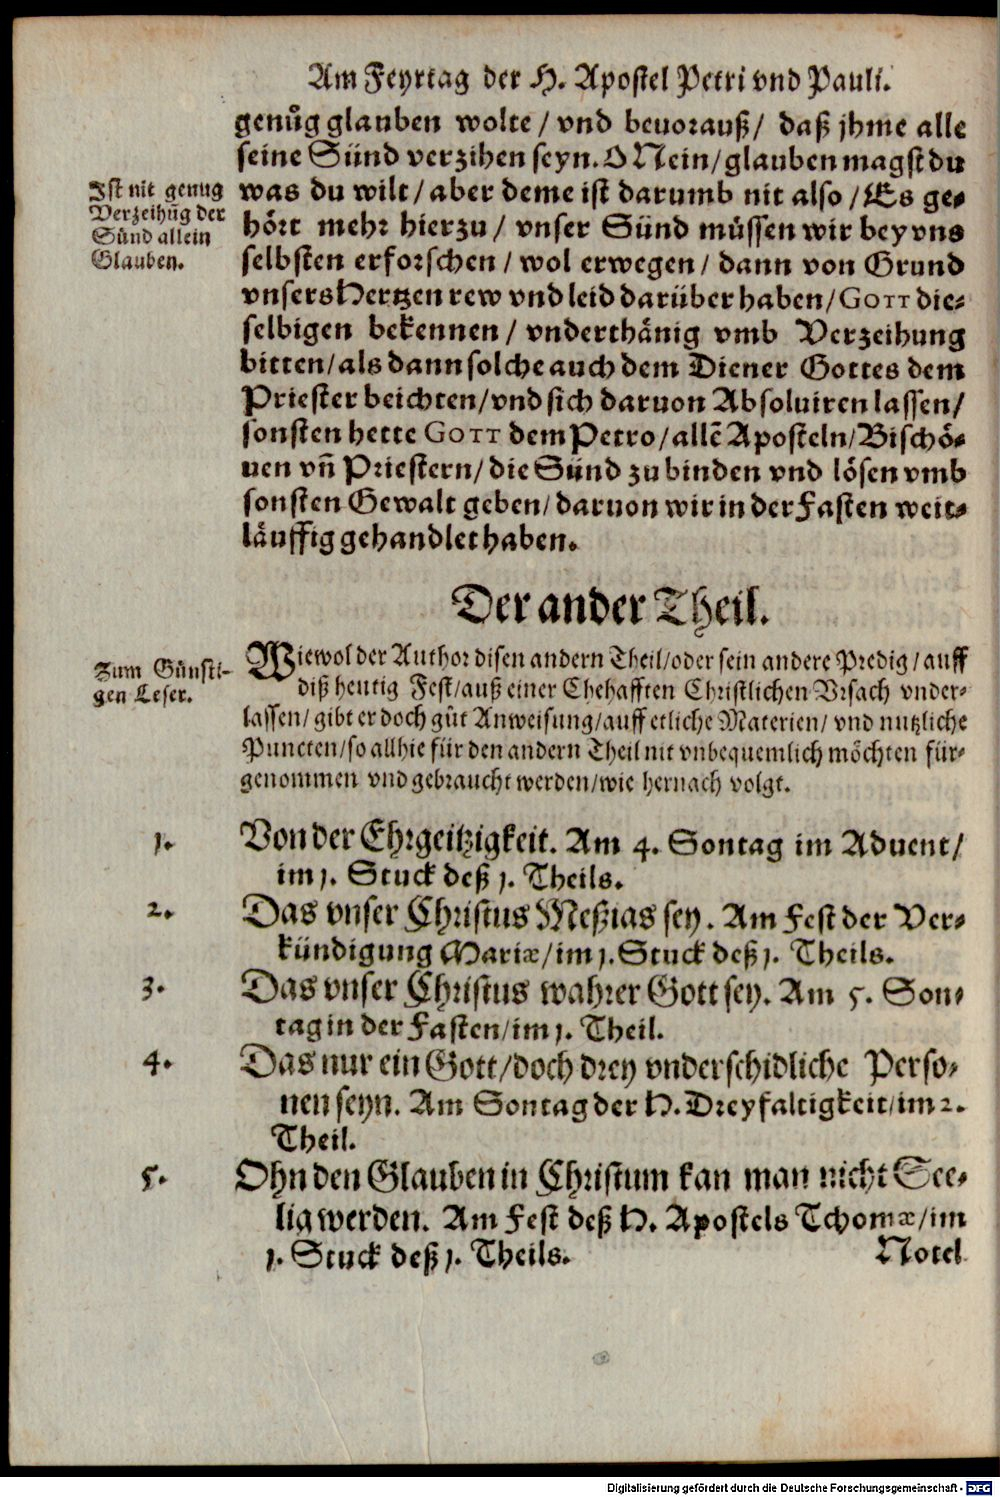 Am Feyrtag der H. Apostel Petri vnd Pauli.
genůg glauben wolte / vnd beuorauß / daß jhme alle
seine Sünd verzihen seyn. O Nein / glauben magst du
Ist nit genug
Verzeihũg der
Sünd allein
Glauben.
was du wilt / aber deme ist darumb nit also / Es ge-
hört mehr hierzu / vnser Sünd müssen wir bey vns
selbsten erforschen / wol erwegen / dann von Grund
vnsers Hertzen rew vnd leid darüber haben / GOTT die-
selbigen bekennen / vnderthänig vmb Verzeihung
bitten / als dann solche auch dem Diener Gottes dem
Priester beichten / vnd sich daruon Absoluiren lassen /
sonsten hette GOTT dem Petro / allẽ Aposteln / Bischö-
uen vñ Priestern / die Sünd zu binden vnd lösen vmb
sonsten Gewalt geben / daruon wir in der Fasten weit-
läuffig gehandlet haben.
Der ander Theil.
Zum Günsti-
gen Leser.
Wiewol der Author disen andern Theil / oder sein andere Predig / auff
diß heutig Fest / auß einer Ehehafften Christlichen Vrsach vnder-
lassen / gibt er doch gůt Anweisung / auff etliche Materien / vnd nutzliche
Puncten / so allhie für den andern Theil nit vnbequemlich möchten für-
genommen vnd gebraucht werden / wie hernach volgt.
1. Von der Ehrgeitzigkeit. Am 4. Sontag im Aduent /
im 1. Stuck deß 1. Theils.
2. Das vnser Christus Meßias sey. Am Fest der Ver-
kündigung Mariæ / im 1. Stuck deß 1. Theils.
3. Das vnser Christus wahrer Gott sey. Am 5. Son-
tag in der Fasten / im 1. Theil.
4. Das nur ein Gott / doch drey vnderschidliche Perso-
nen seyn. Am Sontag der H. Dreyfaltigkeit / im 2.
Theil.
5. Ohn den Glauben in Christum kan man nicht See-
lig werden. Am Fest deß H. Apostels Tchomæ / im
1. Stuck deß 1. Theils.
Notel
Digitalisierung gefördert durch die Deutsche Forschungsgemeinschaft - DFG